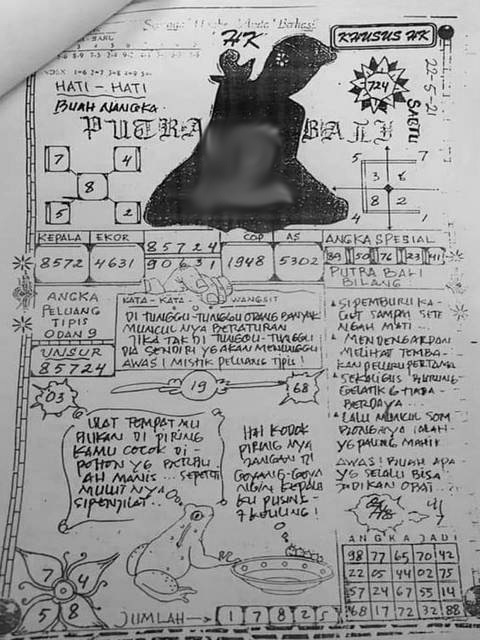 HK
KHUSUS HK
HATI - HATI
BUAH NANGKA
724
22-5-21
SABTU
PUTRA BALI
7 4
8
5 2
5 7
3 6
8 2
4 1
KEPALA EKOR 85724 COP AS ANGKA SPESIAL
8572 4631 90631 1948 5302 89 50 76 23 41
PUTRA BALI
BILANG
ANGKA
PELUANG
TIPIS
0 DAN 9
UNSUR
85724
KATA - KATA WANGSIT
DI TUNGGU - TUNGGU ORANG BANYAK
MUNCUL NYA BERATURAN
JIKA TAK DI TUNGGU - TUNGGU
DIA SENDIRI YG AKAN MENUNGGU
AWAS! MISTIK PELUANG TIPIS!
SI PEMBURU KA-
GUT SAMPAI SETE
NGAH MATI...
MENDENGAR DAN
MELIHAT TEMBA-
KAN PELURU PERTAMA
SEKALIGUS BURUNG
GELATIK
BERDAYA...
LALU MUNCUL SOM
BONGNYA IALAH
YG PALING MAHIR
AWAS! BUAH APA
YG SELALU BISA
JADIKAN OBAT...
03
19
68
ULAT TEMPAT MU
BUKAN DI PIRING
KAMU COCOK DI
POHON YG
AH MANIS... SEPERTI
MULUTNYA
SIPENJILAT..
HAI KODOK
PIRING NYA
JANGAN DI
GOYANG-GOYA
NGIN KEPALA
KU PUSING
7 KELILING!
7 4
5 8
JUMLAH 1 7 8 2 5
ANGKA JADI
98 77 65 70 42
22 05 44 02 75
57 24 67 55 14
68 17 72 32 88